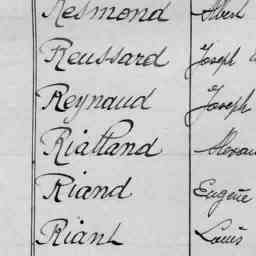 Resmond Albert
Reussard Joseph
Reynaud Joseph
Rialland
Riand Eugène
Riant Louis